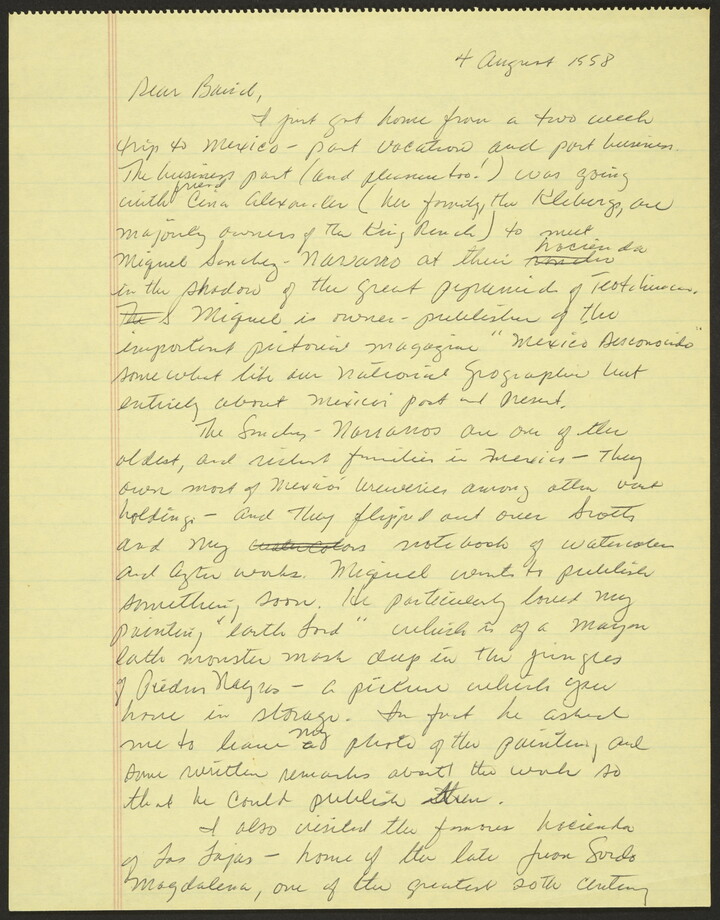 4 August 1998
Dear Baird,
I just got home from a two week
trip to Mexico - part vacation and part business.
The business part (and pleasure too!) was going
with friend Cina Alexander (her family, the Klebergs, are
majority owners of the King Ranch) to meet
Miguel Sanchez-Navarro at their rancho hacienda
in the shadow of the great pyramids of Teotihuacan.
The S Miguel is owner-publisher of the
important pictorial magazine "Mexico Desconocido"
somewhat like our National Geographic but
entirely about Mexico's past and present.
The Sanchez-Navarros are one of the
oldest, and richest families in Mexico - they
own most of Mexico's breweries among other vast
holdings - and they flipped out over Scott's
and my watercolors notebook of watercolors
and Aztec works. Miguel wants to publish
something soon. He particularly loved my
painting "Earth Lord" which is of a Mayan
earth monster mask deep in the jungles
of Piedras Negras - a picture which you
have in storage. In fact he asked
me to leave my photo of the painting, and
some written remarks about the work so
that he could publish them.
I also visited the famous hacienda
of Las Lajas - home of the late Juan Sordo
Magdalena, one of the greatest 20th century